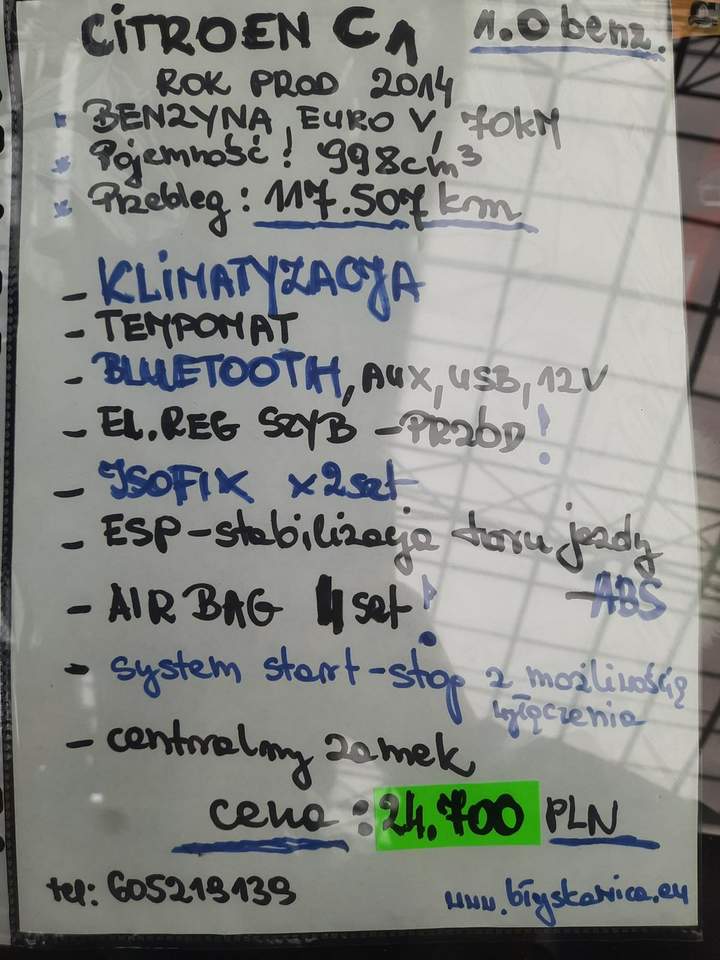 CiTROEN C1 1.0 benz.
ROK PROD 2014
* BENZYNA, EURO V, 70kM
* Pojemność! 998cm³
* Przebieg: 117.507km
- KLiMATYZACJA
- TEMPOMAT
- BLUETOOTH, AUX, USB, 12V
- EL.REG SZYB - PRZÓD!
- ISOFIX x2set
- ESP-stabilizacja toru jazdy
- AIR BAG 4 set! - ABS
- system start-stop z możliwością
wyłączenia
- centralny zamek
cena: 24.700 PLN
tel: 605219139 www.błyskawica.eu